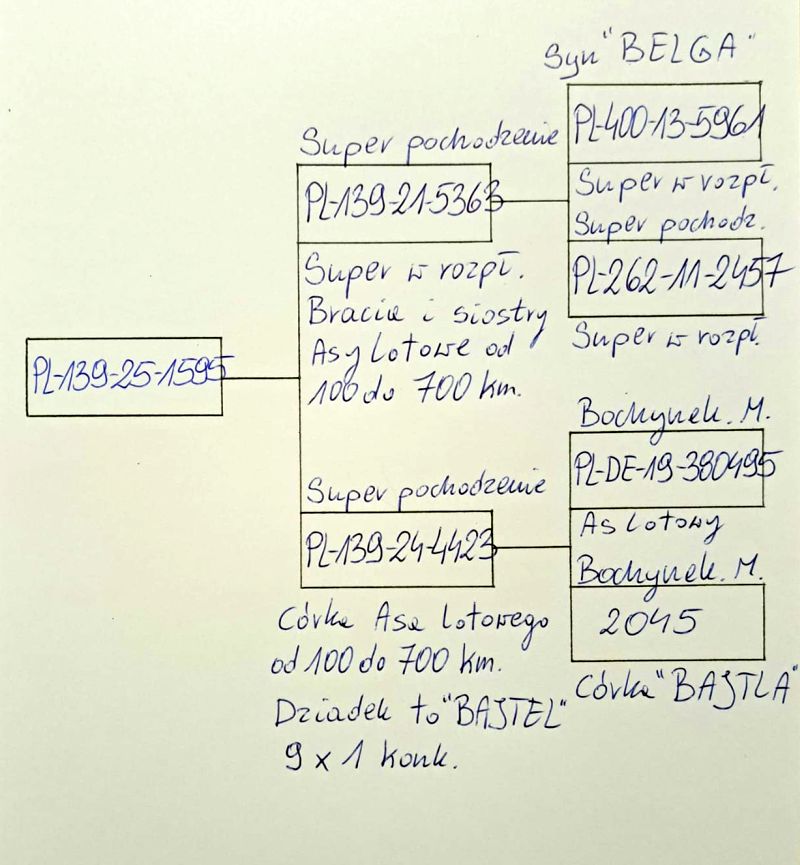 Syn "BELGA"
PL-400-13-5961
Super w rozpł.
Super pochodz.
PL-262-11-2457
Super w rozpł.
Super pochodzenie
PL-139-21-5363
Super w rozpł.
Bracia i siostry
Asy lotowe od
100 do 700 km.
PL-139-25-1595
Bochynek. M.
PL-DE-19-380495
As lotowy
Bochynek. M.
2045
Córka "BAJTLA"
Super pochodzenie
PL-139-24-4423
Córka Asa lotowego
od 100 do 700 km.
Dziadek to "BAJTEL"
9 x 1 konk.